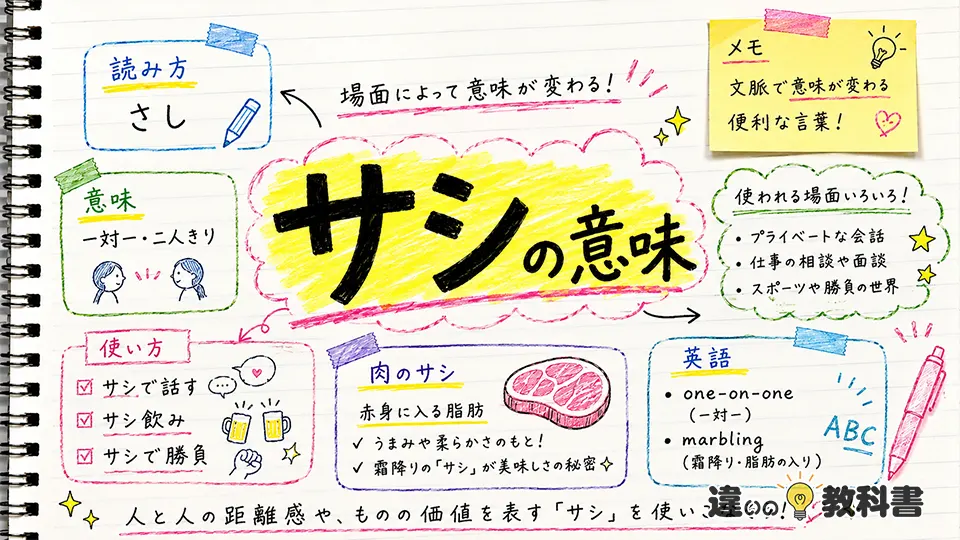 読み方
さし
場面によって意味が変わる!
メモ
文脈で意味が変わる
便利な言葉!
サシの意味
意味
一対一・二人きり
使われる場面いろいろ!
• プライベートな会話
• 仕事の相談や面談
• スポーツや勝負の世界
使い方
サシで話す
サシ飲み
サシで勝負
肉のサシ
赤身に入る脂肪
✓ うまみや柔らかさのもと!
✓ 霜降りの「サシ」が美味しさの秘密
英語
• one-on-one
(一対一)
• marbling
(霜降り・脂肪の入り)
ABC
人と人の距離感や、ものの価値を表す「サシ」を使い
違いの教科書